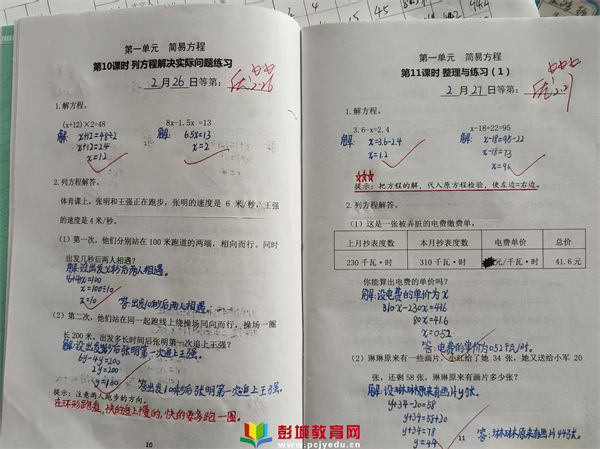 第一单元 简易方程
第10课时 列方程解决实际问题练习
2月26日等第:
2.26
1.解方程。
(x+12)×2=48 8x-1.5x =13
解: x+12=48÷2 解: 6.5x=13
x+12=24 x=2
x=12
2.列方程解答。
体育课上，张明和王强正在跑步，张明的速度是 6 米/秒，王强
的速度是4米/秒。
(1)第一次，他们分别站在 100 米跑道的两端，相向而行。同时
出发几秒后两人相遇？
解:设出发x秒后两人相遇。
6x+4x=100
x=100÷10
x=10 答:出发10秒后两人相遇。
(2)第二次，他们站在同一起跑线上绕操场同向而行，操场一圈
长200米，出发多长时间后张明第一次追上王强？
解:设出发y秒后张明第一次追上王强。
6y-4y=200
2y=200
y=100 答:出发100秒后张明第一次追上王强。
提示：注意两人跑步的方向。
在环形跑道,快的追上慢的,快的要多跑一圈。
10
第一单元 简易方程
第11课时 整理与练习（1）
2月27日等第:
2.27
1.解方程。
3.6-x=2.4 x-18+22=95
解: x=3.6-2.4 解: x-18=95-22
x=1.2 x-18=73
x=91
提示：把方程的解，代入原方程检验，使左边=右边。
2.列方程解答。
(1)这是一张被弄脏的电费缴费单，
上月抄表度数 本月抄表度数 电费单价 总价
230 千瓦·时 310 千瓦·时 元/千瓦·时 41.6元
你能算出电费的单价吗？
解:设电费的单价为x
310x-230x=41.6
80x=41.6
x=0.52
答:电费的单价为0.52千瓦/时.
(2)琳琳原来有一些画片，小红给了她 34 张，她又送给小军 20
张，还剩 58 张，琳琳原来有画片多少张？
解:设琳琳原来有画片y张.
y+34-20=58
y+34=58+20
y+34=78
y=44 答:琳琳原来有画片44张.
11
彭城教育网
www.pcjyedu.cn